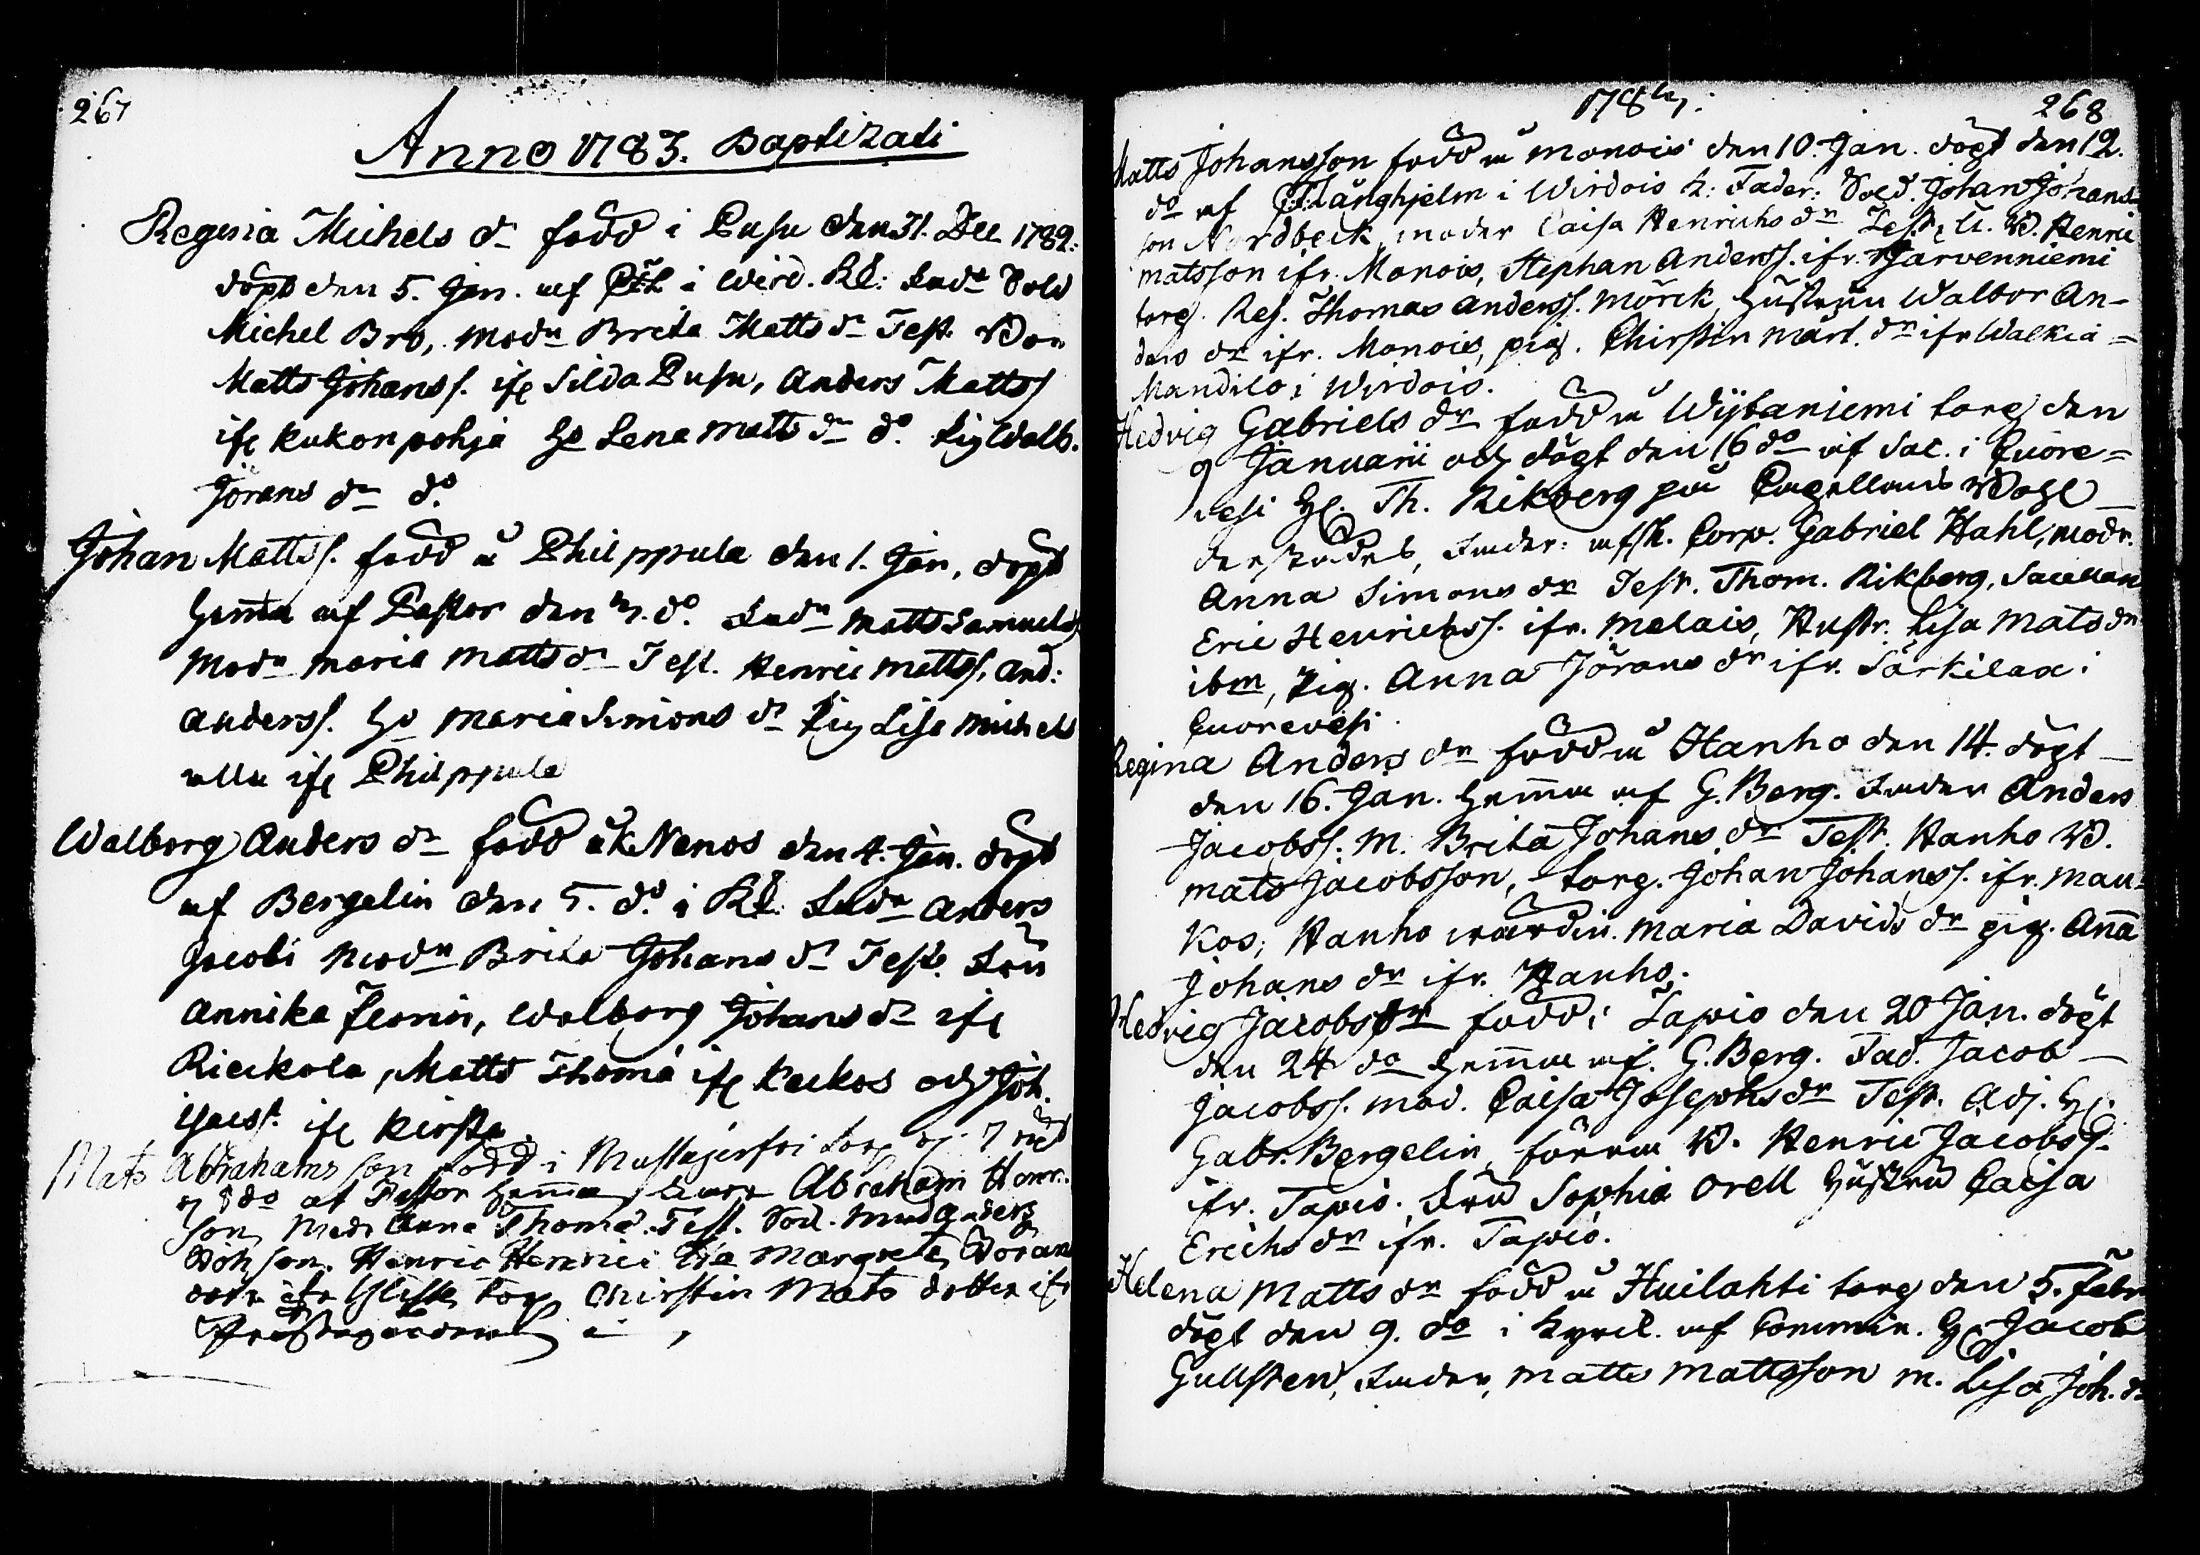 267
Anno 1783. Baptizati
Regina Michels dr född i Pusu den 31. Dec 1782.
döpt den 5. Jan. af i Wird. Kk: Fadr Sold
Michel Bro, modr Brita Matts dr Test. Bon
Matts Johanss. ifr Silda Pusu, Anders Mattss
ifr Kukonpohja Ho Lena Matts dr do. Pig Walb.
Jörans dr do
Johan Mattss. född å Philppula den 1. Jan, döpt
hema af Pastor den 3. do. Fadr Matts Samuels
Modr Maria Matts dr Test. Henric Mattss. And:
Anderss. Ho Maria Simons dr Pig Lisa Michels
alla ifr Philppula
Walborg Anders dr född å Nenos den 4. Jan. döpt
af Bergelin den 5. do i Kk. Fadr Anders
Jacobi Modr Brita Johans dr Test. Fru
Annika Walborg Johans dr ifr
Rickola, Matts Thomæ ifr Keckos och Joh.
ifr Kirsta
Mats Abrahams son född i torp 7
8 do af Pastor hemma, Abraham Henr.
son Modr Anna Thomæ. Test. Sol. Anders
son. Henric Henrici Margreta
dotr ifr torp Chirstin Mats dotter ifr

1783. 268
Matts Johansson född å Monois den 10. Jan. döpt den 12.
do af C: Tlånghjelm i Wirdois k: Fader: Sold. Johan Johans
son Nordbeck, moder Caisa Henrichs dr Test, B. Henric
Matsson ifr. Monois, Stephan Anderss. ifr. Jarvenniemi
torp. Res. Thomas Anderss. Mörck, hustrun Walbor An-
ders dr ifr. Monois, pig. Chirstin Märt. dr ifr Walkia=
Mandilo i Wirdois.
Hedvig Gabriels dr född å Wijtaniemi torp den
9 Januarii och döpt den 16 do af Sac. i Cuore=
vesi H. Th. Rikberg på Capellans Bohl
derstädes, Fader: afsk. Corp. Gabriel Hahl, modr.
Anna Simons dr Test. Thom. Rikberg, Sacellan
Eric Henrichss. ifr. Melais, Hustr. Lisa Mats dr
ibm, Pig. Anna Jörans dr ifr. Särkilax i
Cuorevesi.
Regina Anders dr född å Hanho den 14. döpt
den 16. Jan. hemma af G. Berg. Fader Anders
Jacobss. M. Brita Johans dr Test. Hanho B.
Mats Jacobsson, torp. Johan Johanss. ifr. Mau-
kos; Hanho wärdin. Maria Davids dr pig. Ana
Johans dr ifr. Hanho.
Hedvig Jacobs dr född i Tapio den 20 Jan. döpt
den 24 do hemma af G. Berg. Fad. Jacob
Jacobss. mod. Caisa Josephs dr Test. Adj. H.
Gabr. Bergelin, förra B. Henric Jacobss.
ifr. Tapio. Fru Sophia Orell hustru Caisa
Erichs dr ifr. Tapio.
Helena Matts dr född å Huilahti torp den 5. Febr
döpt den 9. do i kyrck. af Commin. H. Jacob
Gullsten, Fader, Matts Mattsson M. Lisa Joh. dr